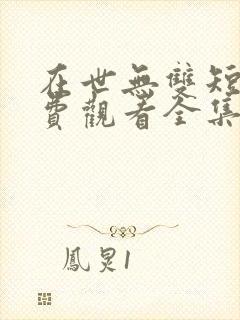 在世無雙短
費觀看全集
鳳炅1